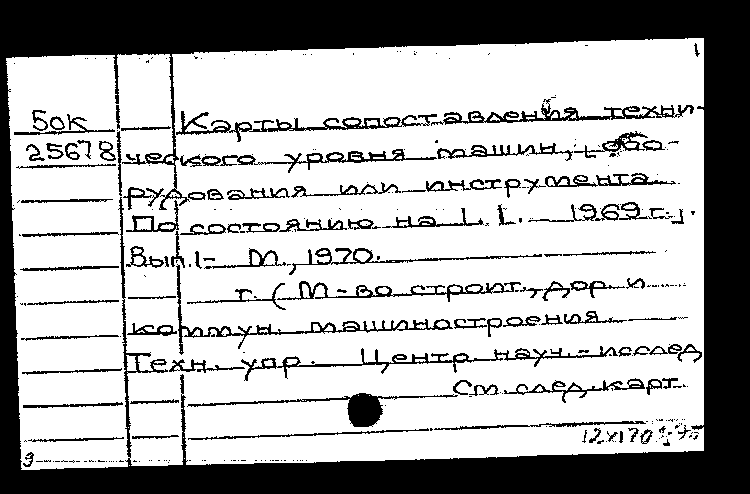 1
50к Карты сопоставления техни-
25678 ческого уровня машин, [обо-
рудования или инструмента
По состоянию на 1. 1. 1969 г.].
Вып.1- М., 1970.
т. (М-во строит., дор. и
коммун. машиностроения.
Техн. упр. Центр. науч.-исслед
См. след. карт.
12 XI 70
9